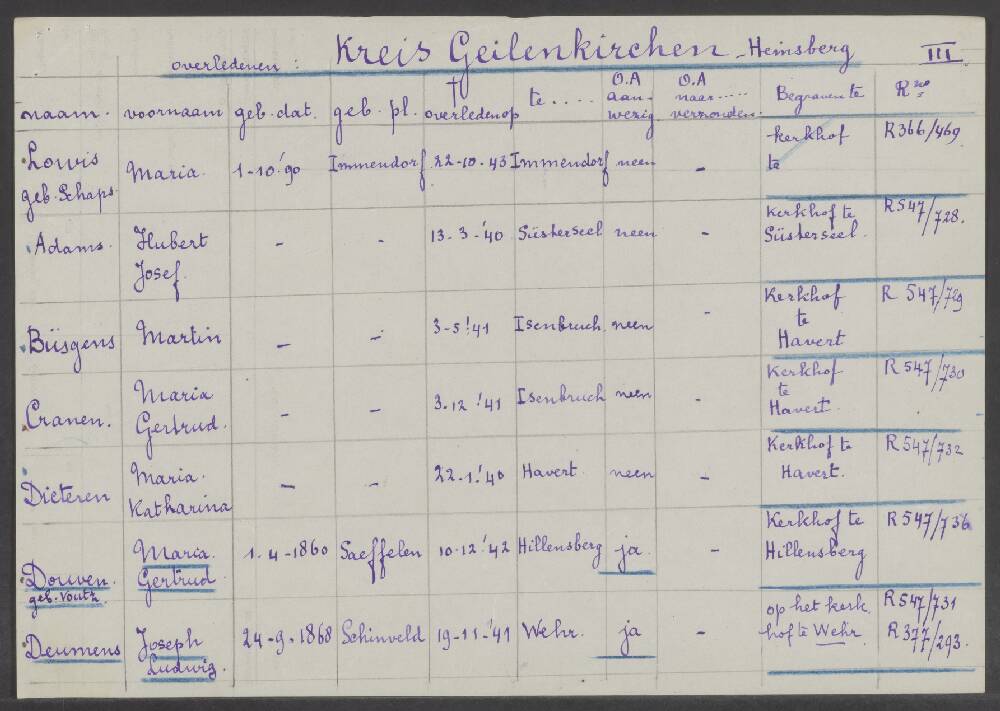 overledenen: Kreis Geilenkirchen - Heinsberg III
naam. voornaam geb. dat. geb. pl. † overleden op te ..... O.A aanwezig O.A naar ..... verzonden. Begraven te R
Lowis geb. Schaps. Maria. 1-10-'90 Immendorf 22-10-43 Immendorf neen - kerkhof te R366/469
Adams. Hubert Josef. - - 13-3-'40 Süsterseel neen - Kerkhof te Süsterseel. R547/728.
Büsgens Martin - - 3-5-'41 Isenbruch neen - Kerkhof te Havert R 547/729
Cranen. Maria Gertrud. - - 3.12.'41 Isenbruch neen - Kerkhof te Havert. R 547/730
Dieteren Maria. Katharina - - 22-1-'40 Havert neen - Kerkhof te Havert. R547/732
Douven. geb. Vouth. Maria. Gertrud. 1-4-1860 Saeffelen 10-12-'42 Hillensberg ja. - Kerkhof te Hillensberg R547/736
Deumens Joseph Ludwig. 24-9-1868 Schinveld 19-11-'41 Wehr. ja - op het kerkhof te Wehr. R547/731 R377/293.